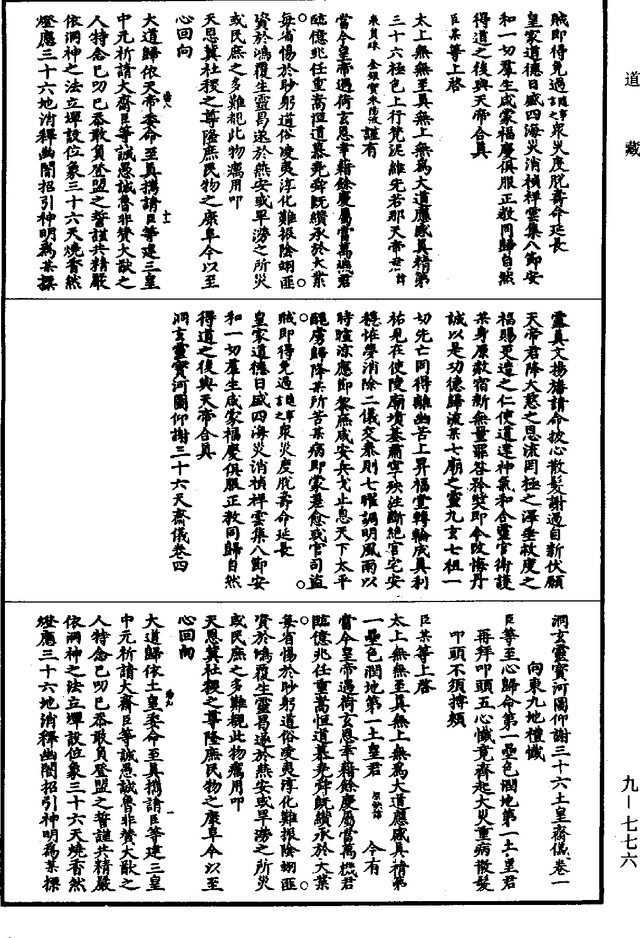 道藏
賊即得免過言之眾災度脫壽命延長
皇家道德日盛四海災消禎祥雲集八節安
和一切羣生咸蒙福慶俱服正教同歸自然
得道之後與天帝合真
臣某等上啓
太上無無至真無上無為大道應感真精第
三十六極色上行梵泥維先若那天帝
謹有
當今皇帝過荷玄恩幸藉餘慶屬當萬機君
臨億兆任重嵩恒道慕堯舜既纘承於大業
每省惕於眇躬道俗凌夷淳化難振陰翊匪
資於鴻覆生靈曷遂於燕安或旱澇之所災
或民庶之多難覩此物癘用叩
天恩冀社稷之尊隆庶民物之康阜今以至
心回向
大道歸依天帝委命至真攜請臣等建三皇
中元祈請大齋臣等誠愚誠魯非贊大猷之
人特念已叨已忝敢負登盟之誓謹共精嚴
依洞神之法立壇設位象三十六天燒香然
燈應三十六地消釋幽闇招引神明為某探
靈真文揚旛請命披心散髮謝過自新伏願
天帝君降大慈之恩流罔極之澤垂救度之
福賜更造之仁使道達神氣和合靈官衛護
某身原赦宿新無量罪咎矜獎即今改悔丹
誠以是功德歸流某七廟之靈九玄七祖一
切先亡同得離幽苦上昇福堂轉輪成真利
祐見在使陵廟墳墓肅寧殃注斷絕官宅安
穩怪夢消除二儀交泰則七曜調明風雨以
時暄涼應即黎庶咸安兵戈止息天下太平
醜虜歸降某所苦某病即蒙蠲愈或官司盜
賊即得免過言之眾災度脫壽命延長
皇家道德日盛四海災消禎祥雲集八節安
和一切羣生咸蒙福慶俱服正教同歸自然
得道之後與天帝合真
洞玄靈寶河圖仰謝三十六天齋儀卷四
洞玄靈寶河圖仰謝三十六土皇齋儀卷一
向東九地禮懺
臣等至心歸命第一壘色潤地第一土皇君
再拜叩頭五心懺竟齊起大災重病散髮
叩頭不須搏頰
臣某等上啓
太上無無至真無上無為大道應感真精第
一壘色潤地第一土皇君
今有
當今皇帝過荷玄恩幸藉餘慶屬當萬機君
臨億兆任重嵩恒道慕堯舜既纘承於大業
每省惕於眇躬道俗凌夷淳化難振陰翊匪
資於鴻覆生靈曷遂於燕安或旱澇之所災
或民庶之多難覩此物癘用叩
天恩冀社稷之尊隆庶民物之康阜今以至
心回向
大道歸依土皇委命至真攜請臣等建三皇
中元祈請大齋臣等誠愚誠魯非贊大猷之
人特念已叨已忝敢負登盟之誓謹共精嚴
依洞神之法立壇設位象三十六天燒香然
燈應三十六地消釋幽闇招引神明為某探
九－七七六